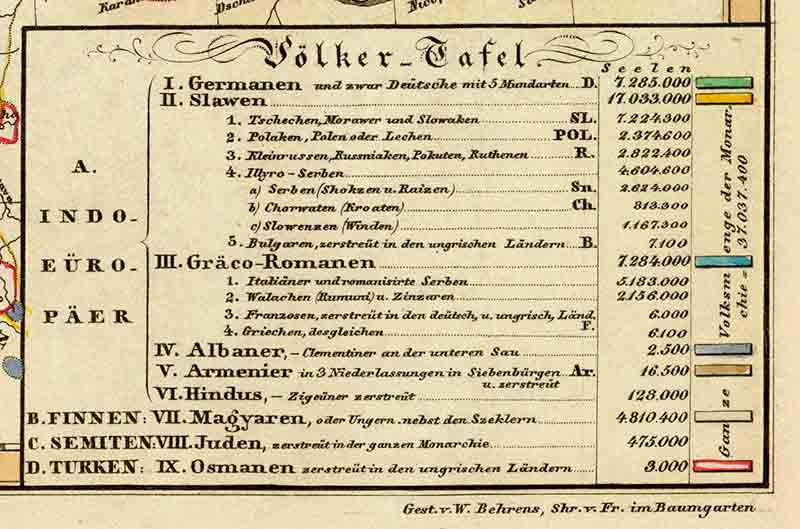 Karan
Dscha
Nico
Völker-Tafel.
Seelen
I. Germanen und zwar Deütsche mit 5 Mundarten D. 7.285.000
II. Slawen 17.033.000
1. Tschechen, Morawer und Slowaken SL. 7.224.300
2. Polaken, Polen oder Lechen POL. 2.374.600
3. Kleinrussen, Russniaken, Pokuten, Ruthenen R. 2.822.400
4. Illyro-Serben 4.604.600
a) Serben (Shokzen u. Raizen) Sn. 2.624.000
b) Chorwaten (Kroaten) Ch. 813.300
c) Slowenzen (Winden) 1.167.300
5. Bulgaren, zerstreüt in den ungrischen Ländern B. 7.100
III. Gräco-Romanen 7.284.000
1. Italiäner und romanisirte Serben 5.183.000
2. Walachen (Rumuni) u. Zinzaren 2.156.000
3. Franzosen, zerstreüt in den deütsch. u. ungrisch. Länd. 6.000
F.
4. Griechen, desgleichen 6.100
IV. Albaner, – Clementiner an der unteren Sau 2.500
V. Armenier in 3 Niederlassungen in Siebenbürgen Ar. 16.500
u. zerstreüt
VI. Hindus, – Zigeüner zerstreüt 128.000
A.
INDO-
EÜRO-
PÄER
B. FINNEN: VII. Magyaren, oder Ungern nebst den Szeklern 4.810.400
C. SEMITEN: VIII. Juden, zerstreüt in der ganzen Monarchie 475.000
D. TURKEN: IX. Osmanen zerstreüt in den ungrischen Ländern 3.000
Ganze Volksmenge der Monar-
chie = 37.037.400
Gest. v. W. Behrens, Shr. v. Fr. im Baumgarten